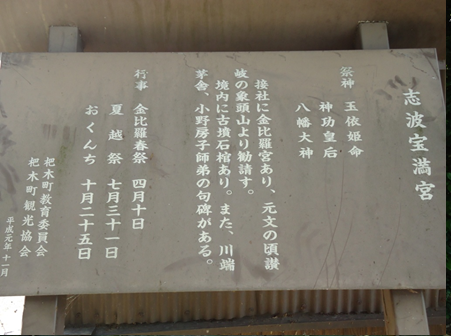 志波宝満宮
祭神　玉依姫命
神功皇后
八幡大神
接社に金比羅宮あり、元文の頃讃
岐の象頭山より勧請す。
境内に古墳石棺あり。また、川端
茅舎、小野房子師弟の句碑がある。
行事　金比羅春祭　四月十日
夏越祭　七月三十一日
おくんち　十月二十五日
杷木町教育委員会
杷木町観光協会
平成元年十一月